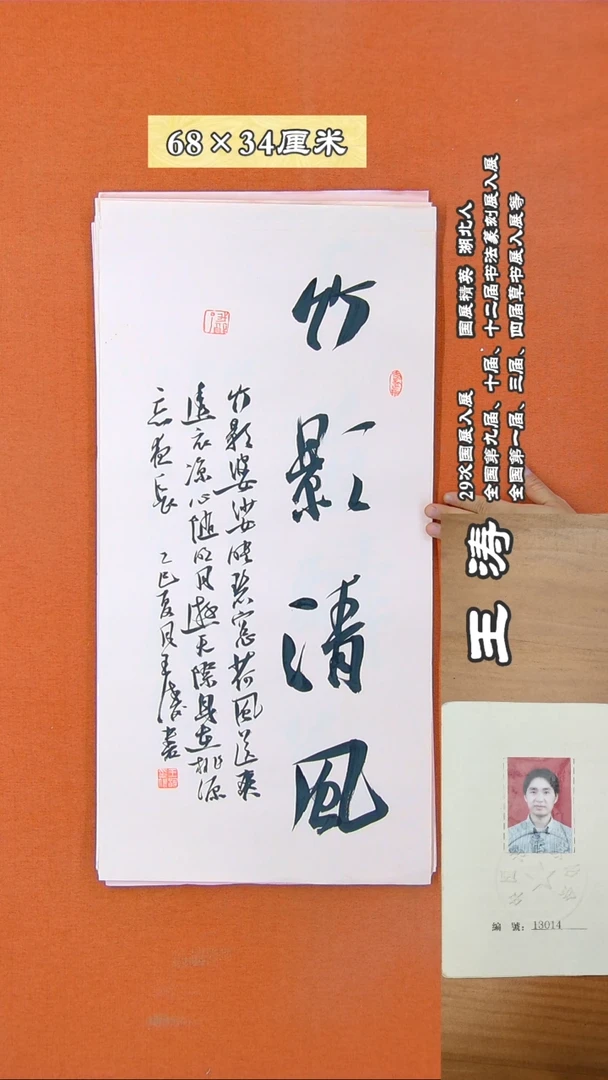 68×34厘米
竹影清风
竹影婆娑映碧窗荷风送爽
遠衣凉心随明月遊天际身在桃源
忘夜长 乙巳夏月王涛书
29次国展入展 国展精英 湖北人
全国第九届、十届、十二届书法篆刻展入展
全国第一届、三届、四届草书展入展等
王涛
編號：13014